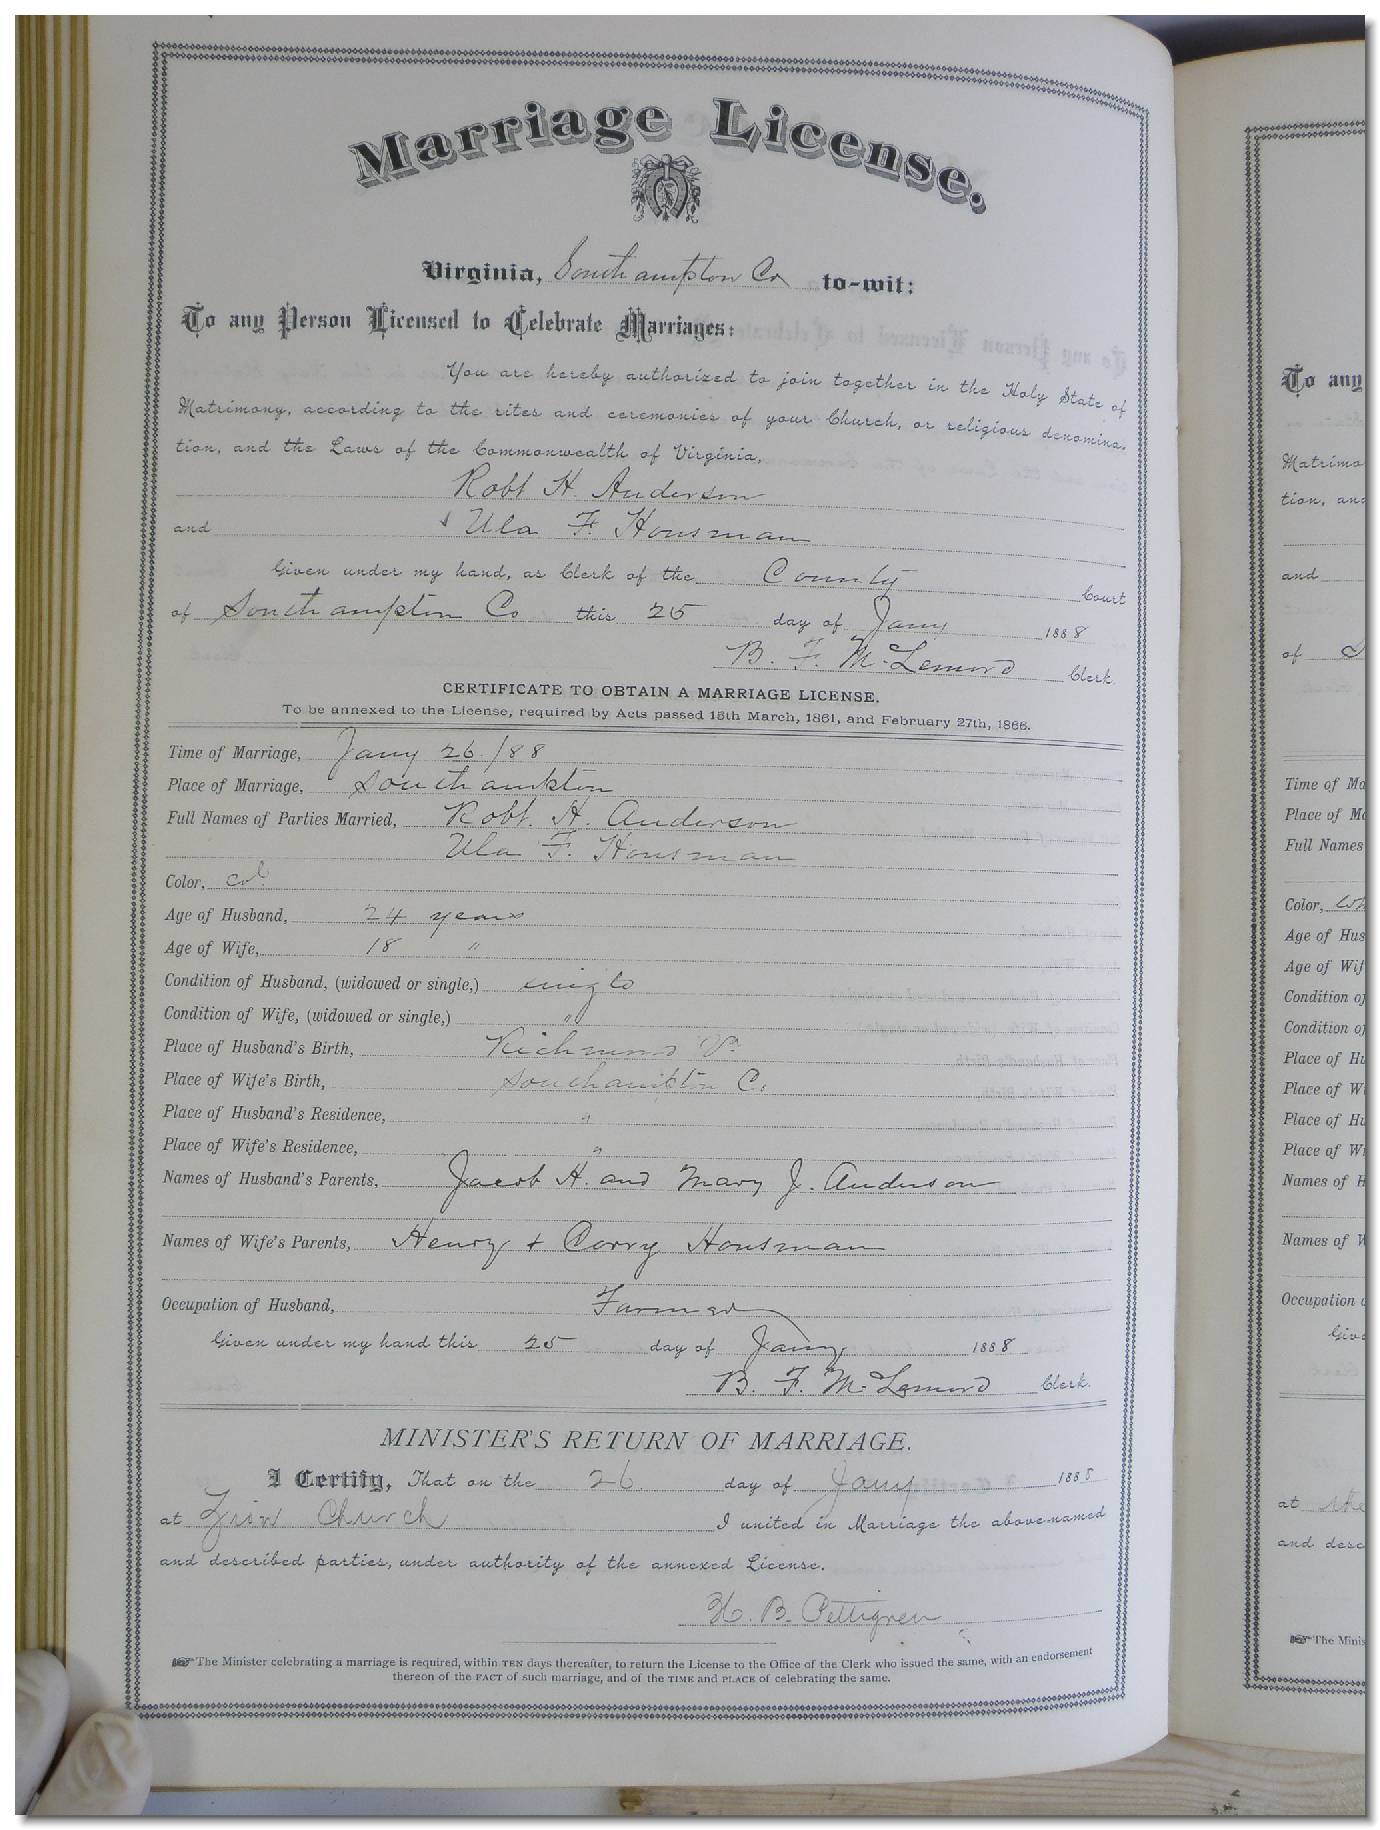 Marriage License.
Virginia, Southampton Co to-wit:
To any Person Licensed to Celebrate Marriages:
You are hereby authorized to join together in the Holy State of
Matrimony, according to the rites and ceremonies of your Church, or religious denomina-
tion, and the Laws of the Commonwealth of Virginia,
Robt H. Anderson
and Ula F. Housman
Given under my hand, as Clerk of the County Court
of Southampton Co this 25 day of Jany 1888
B. F. McLemore Clerk.
CERTIFICATE TO OBTAIN A MARRIAGE LICENSE.
To be annexed to the License, required by Acts passed 15th March, 1861, and February 27th, 1866.
Time of Marriage, Jany 26/88
Place of Marriage, Southampton
Full Names of Parties Married, Robt. H. Anderson
Ula F. Housman
Color, col
Age of Husband, 24 years
Age of Wife, 18 "
Condition of Husband, (widowed or single,) single
Condition of Wife, (widowed or single,) "
Place of Husband's Birth, Richmond Va
Place of Wife's Birth, Southampton Co
Place of Husband's Residence, "
Place of Wife's Residence, "
Names of Husband's Parents, Jacob H. and Mary J. Anderson
Names of Wife's Parents, Henry + Corry Housman
Occupation of Husband, Farmer
Given under my hand this 25 day of Jany 1888
B. F. McLemore Clerk.
MINISTER'S RETURN OF MARRIAGE.
I Certify, That on the 26 day of Jany 1888
at Zion Church I united in Marriage the above-named
and described parties, under authority of the annexed License.
H. B. Pettigrew
☞ The Minister celebrating a marriage is required, within TEN days thereafter, to return the License to the Office of the Clerk who issued the same, with an endorsement
thereon of the FACT of such marriage, and of the TIME and PLACE of celebrating the same.
To any
Matrimo
tion, and
and
of
Time of Ma
Place of Ma
Full Names
Color, Wh
Age of Hus
Age of Wif
Condition of
Condition of
Place of Hu
Place of Wi
Place of Hu
Place of Wi
Names of H
Names of W
Occupation o
Give
at
and desc
☞ The Minis